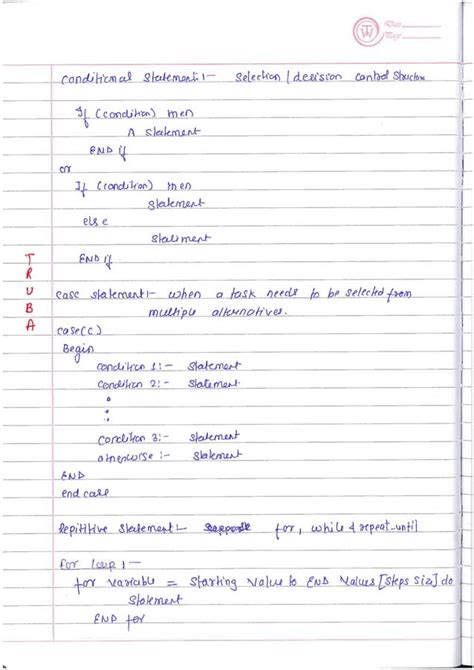 Date
Page
Conditional Statement:- Selection / decision Control Structure
If (condition) then
A statement
END if
or
If (condition) then
Statement
else
Statement
END if
TRUBA
case statement:- when a task needs to be selected from
multiple alternatives.
case(c)
Begin
condition 1:- Statement
condition 2:- Statement.
condition 3:- Statement
otherwise :- Statement
END
end case
Repititive Statement:- for, while & repeat-until
for loop :-
for variable = Starting Value to END Values [Steps Siz] do
Statement
END for